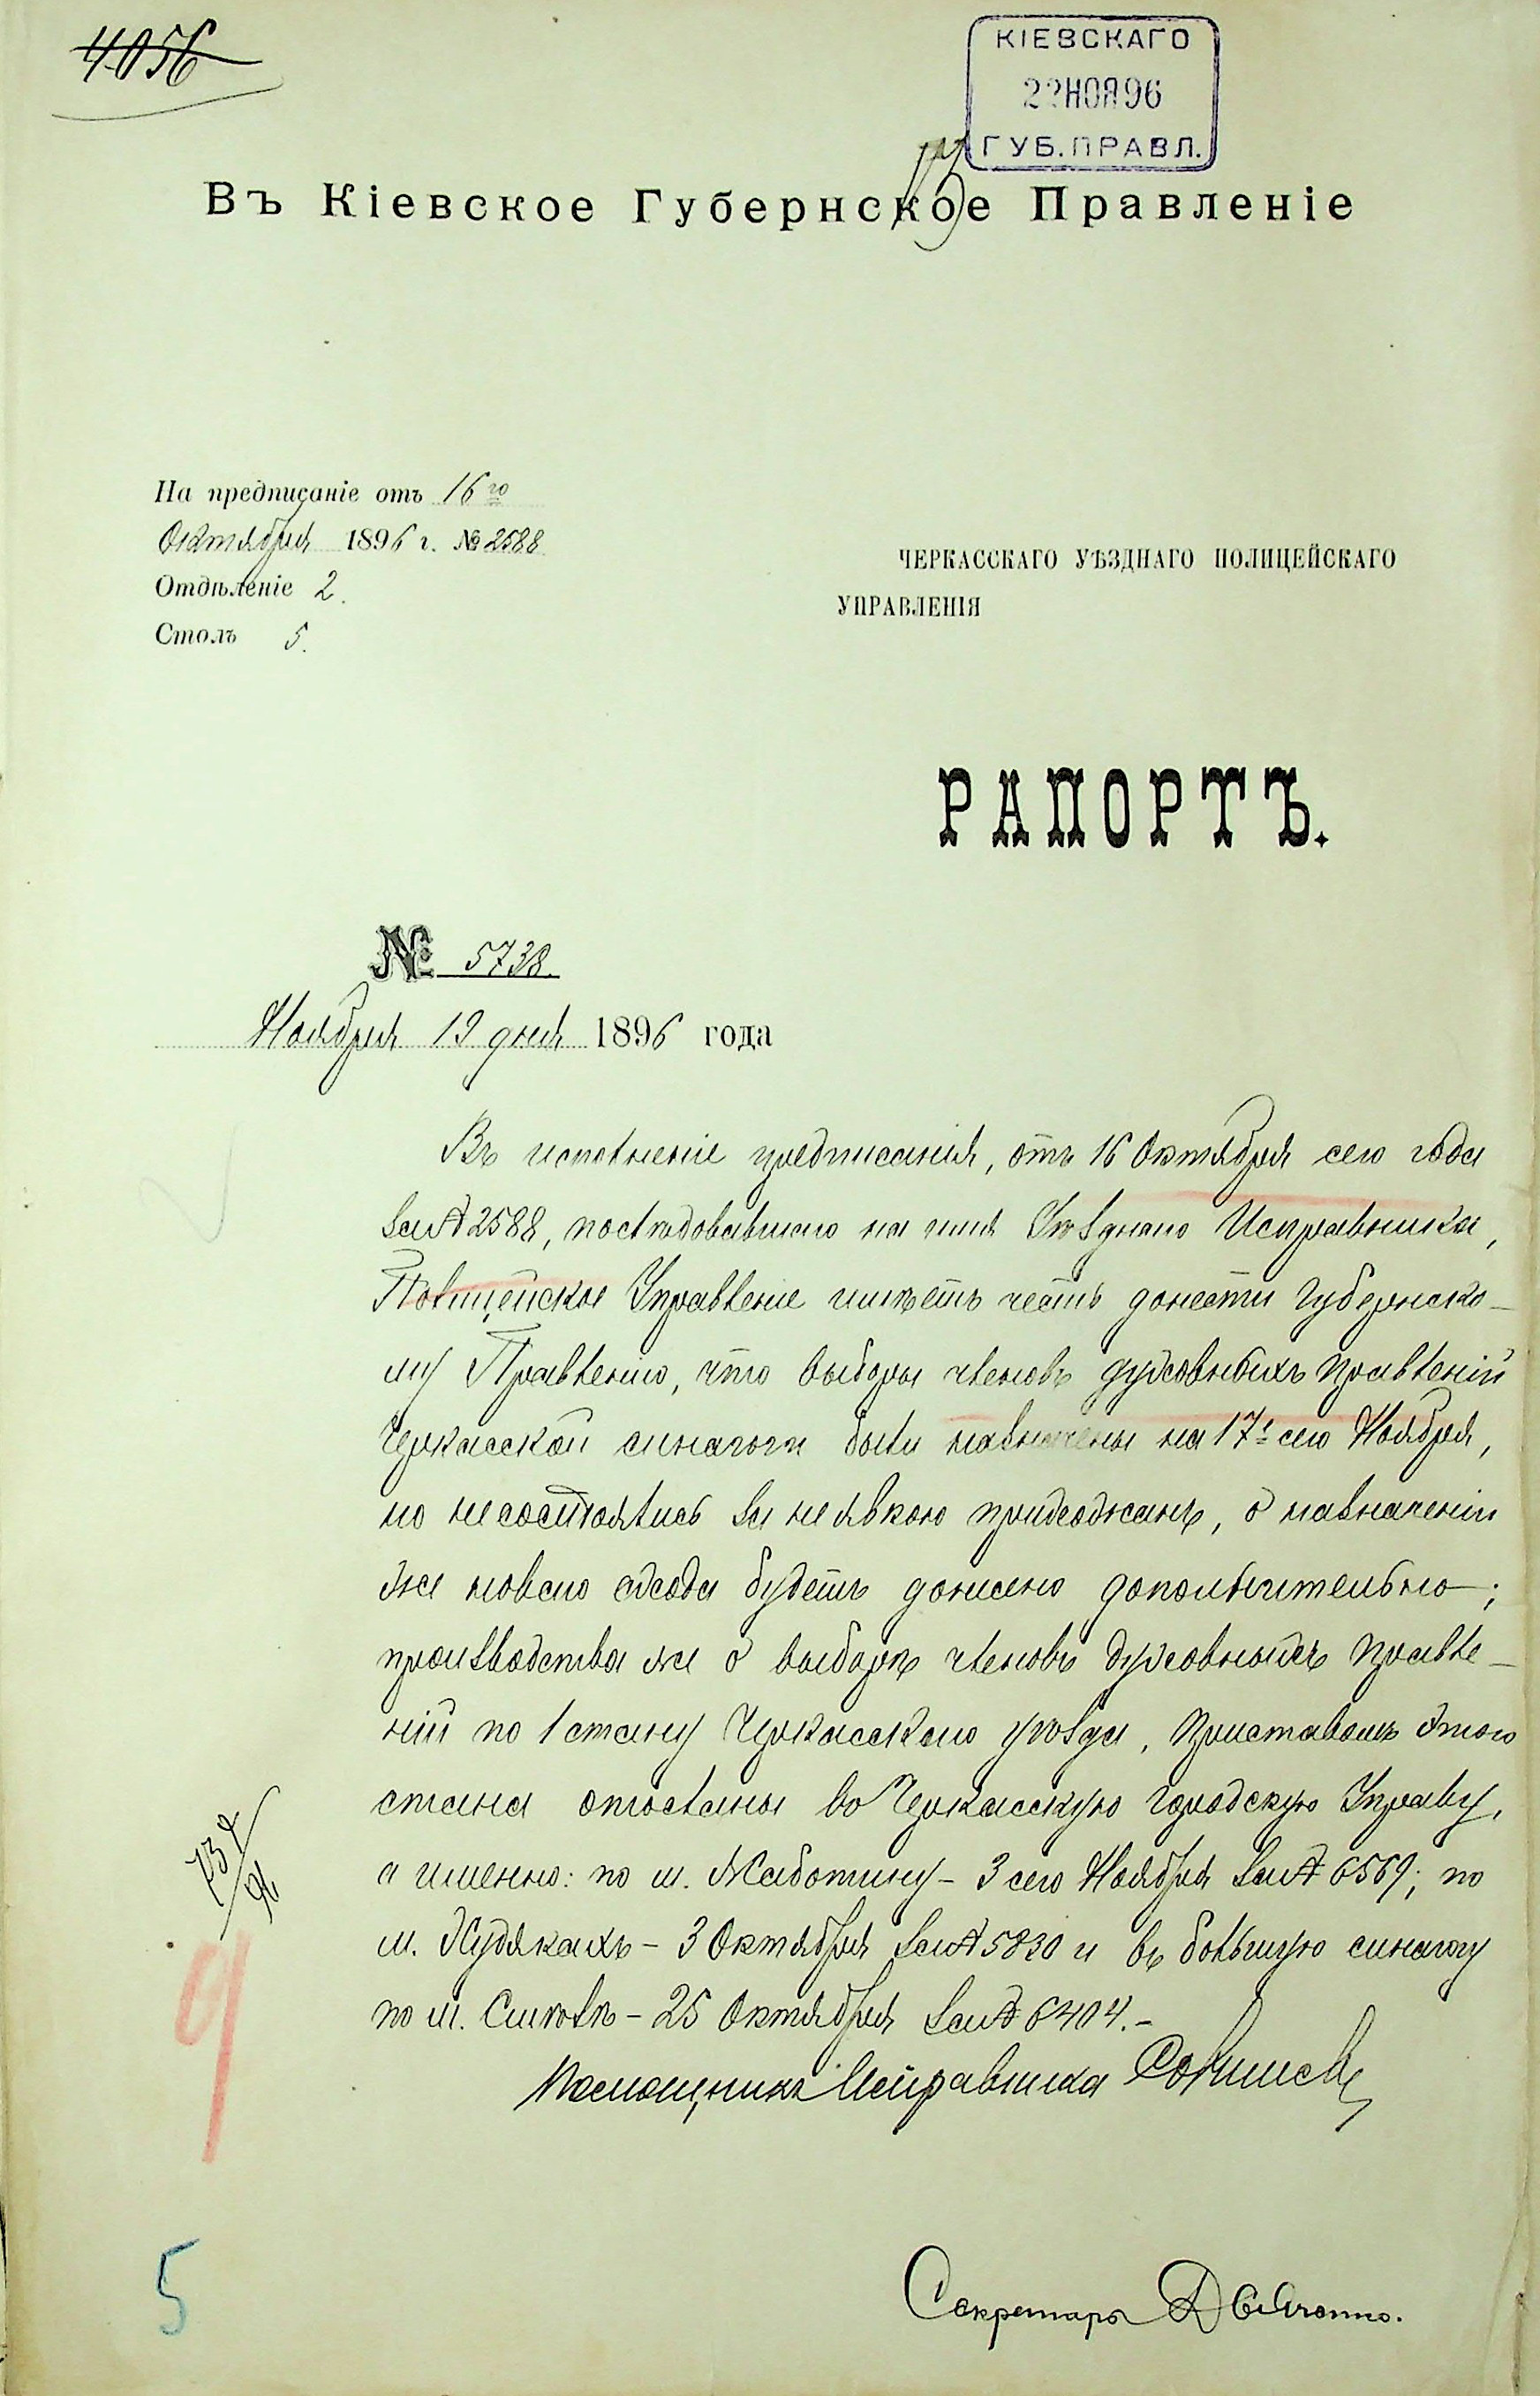 4056
КІЕВСКАГО
22 НОЯ 96
ГУБ. ПРАВЛ.
Въ Кіевское Губернское Правленіе
На предписаніе отъ 16го
Октября 1896 г. № 2588
Отдѣленіе 2.
Столъ 5.
ЧЕРКАССКАГО УѢЗДНАГО ПОЛИЦЕЙСКАГО
УПРАВЛЕНІЯ
РАПОРТЪ.
№ 5738.
Ноября 19 дня 1896 года
Въ исполненіе предписанія, отъ 16 Октября сего года
за № 2588, послѣдовавшаго на имя Уѣзднаго Исправника,
Полицейское Управленіе имѣетъ честь донести Губернско-
му Правленію, что выборы членовъ духовныхъ правленій
Черкасской синагоги были назначены на 17е сего Ноября,
но несостоялись за неявкою прихожанъ, о назначеніи
же новаго схода будетъ донесено дополнительно;
производства же о выборѣ членовъ духовныхъ правле-
ній по 1 стану Черкасскаго уѣзда, Приставомъ этого
стана отосланы во Черкасскую городскую Управу,
а именно: по м. Жаботину - 3 сего Ноября за № 6569; по
м. Худякахъ - 3 Октября за № 5830 и въ большую синагогу
по м. Смѣлѣ - 25 Октября за № 6404. -
Помощникъ Исправника
9
5
Секретарь